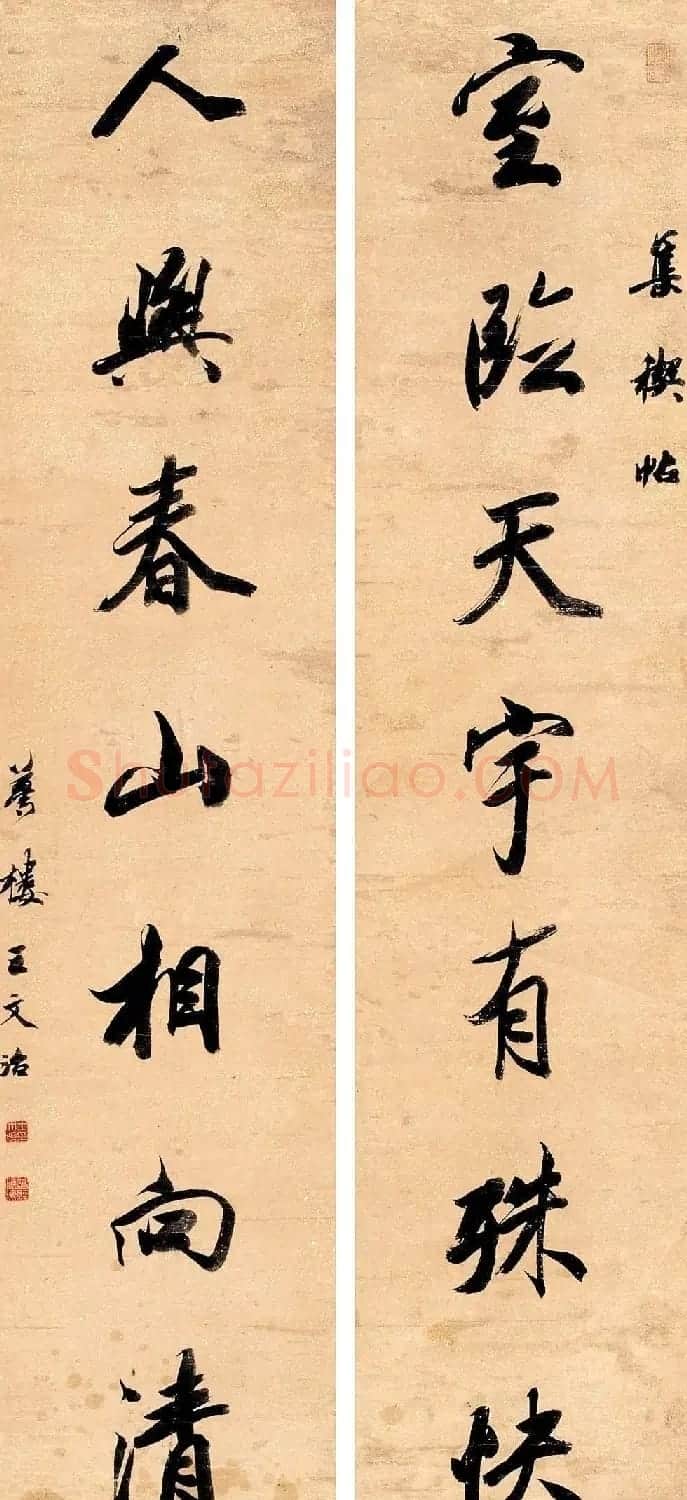 集禊帖
室臨天宇有殊快
人與春山相向清
夢樓王文治
Shufaziliao.COM